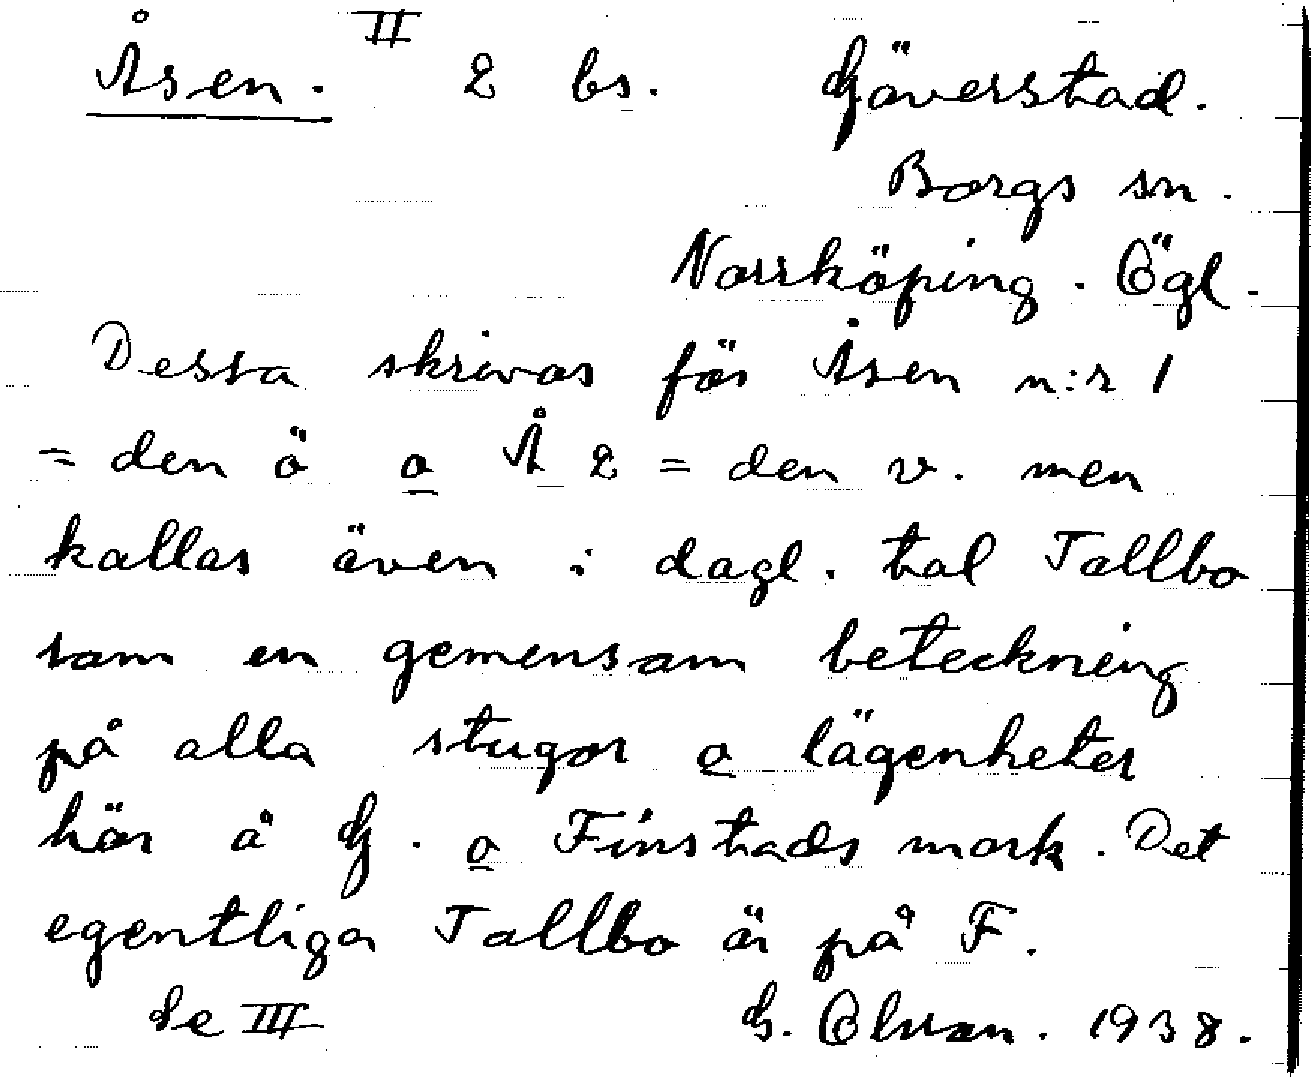 Åsen. II 2 bs. Gäverstad.
Borgs sn.
Norrköping. Ögl.
Dessa skrivas för Åsen n:r 1
= den ö o Å 2 = den v. men
kallas även i dagl. tal Tallbo
som en gemensam beteckning
på alla stugor o lägenheter
här å G. o Finstads mark. Det
egentliga Tallbo är på F.
Se III G. Olsson. 1938.